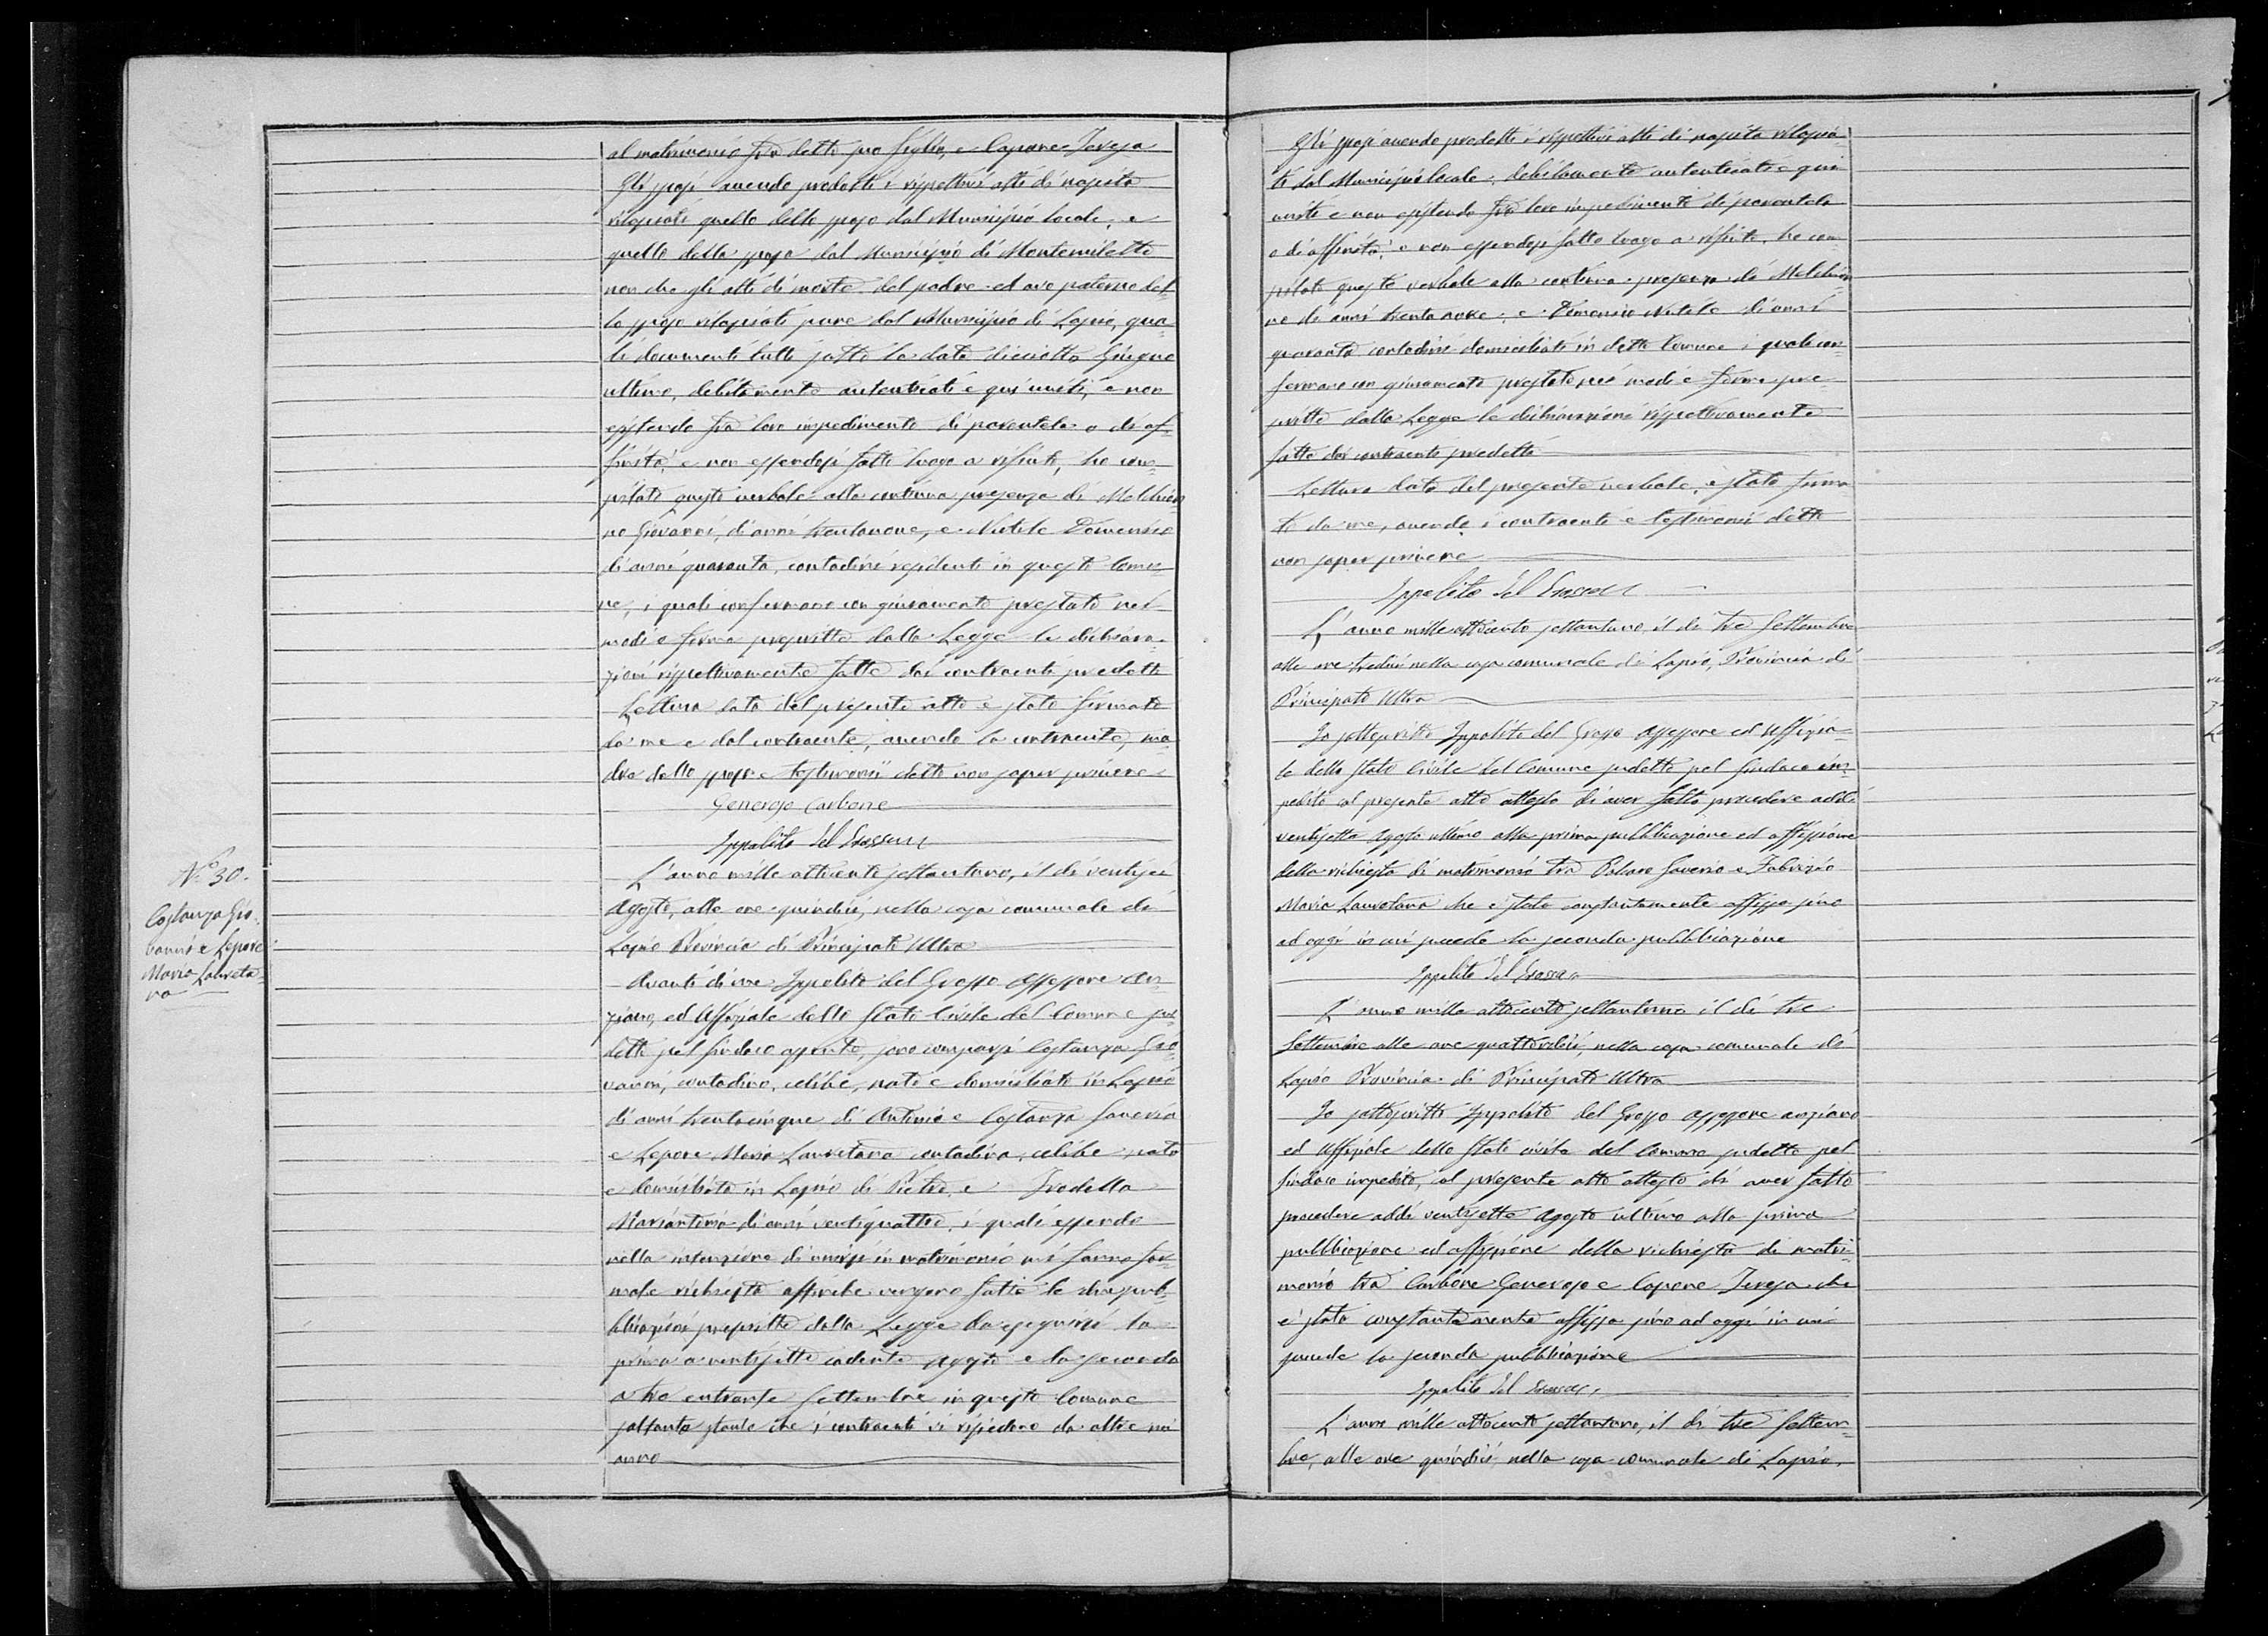 al matrimonio fra detto suo figlio, e Capone Teresa
Gli sposi avendo prodotti i rispettivi atti di nascita
rilasciati quello dello sposo dal Municipio locale, e
quello della sposa dal Municipio di Montemiletto
non che gli atti di morte del padre ed avo paterno del-
lo sposo rilasciati pure dal Municipio di Lapio, qua-
li documenti tutti sotto la data diciotto Giugno
ultimo, debitamente autenticati e qui uniti, e non
esistendo fra loro impedimento di parentela o di af-
finità, e non essendosi fatto luogo a rifiuto, ho com-
pilato questo verbale alla continua presenza di Melchion-
no Giovanni, di anni trentanove, e Nutile Domenico
di anni quaranta, contadini residenti in questo Comu-
ne, i quali confermano con giuramento prestato nei
modi e forme prescritte dalla Legge le dichiara-
zioni rispettivamente fatte dai contraenti predetti
Lettura data del presente atto è stato firmato
da me e dal contraente, avendo la contraente, ma-
dre dello sposo e testimonii detto non saper scrivere
Generoso Carbone
Ippolito del Grosso
N.º 30.
Costanza Gio-
vanni e Lepore
Maria Laureta-
na
L'anno mille ottocento settantuno, il dì ventisei
Agosto, alle ore quindici, nella casa comunale di
Lapio Provincia di Principato Ultra
Avanti di me Ippolito del Grosso Assessore An-
ziano, ed Uffiziale dello Stato Civile del Comune sud-
detto pel Sindaco assente, sono comparsi Costanza Gio-
vanni, contadino, celibe, nato e domiciliato in Lapio
di anni trentacinque di Antonio e Costanza Saveria
e Lepore Maria Lauretana contadina, celibe nata
e domiciliata in Lapio di Pietro, e Iradella
Mariantonia di anni ventiquattro, i quali essendo
nella intenzione di unirsi in matrimonio mi fanno for-
male richiesta affinché vengano fatte le due pub-
blicazioni prescritte dalla Legge da eseguirsi la
prima a ventisette cadente Agosto e la seconda
a tre entrante Settembre in questo Comune
soltanto stante che i contraenti vi risiedono da oltre un
anno
Gli sposi avendo prodotti i rispettivi atti di nascita rilascia-
ti dal Municipio locale, debitamente autenticati e qui
uniti e non esistendo fra loro impedimento di parentela
o di affinità, e non essendosi fatto luogo a rifiuto, ho com-
pilato questo verbale alla continua presenza di Melchion-
no di anni trentanove, e Domenico Nutile di anni
quaranta contadini domiciliati in detto Comune i quali con-
fermano con giuramento prestato nei modi e forme pre-
scritte dalla Legge le dichiarazioni rispettivamente
fatte dai contraenti predetti
Lettura data del presente verbale, è stato firma-
to da me, avendo i contraenti e testimonii detto
non saper scrivere
Ippolito del Grosso
L'anno mille ottocento settantuno, il dì tre Settembre
alle ore tredici nella casa comunale di Lapio, Provincia di
Principato Ultra
Io sottoscritto Ippolito del Grosso Assessore ed Uffizia-
le dello Stato Civile del Comune sudetto pel Sindaco im-
pedito al presente atto attesto di aver fatto procedere addì
ventisette Agosto ultimo alla prima pubblicazione ed affissione
della richiesta di matrimonio tra Piscano Saverio e Fabrizio
Maria Lauretana che è stata constantemente affissa sino
ad oggi in cui succede la seconda pubblicazione
Ippolito del Grosso
L'anno mille ottocento settantuno il dì tre
Settembre alle ore quattordici, nella casa comunale di
Lapio Provincia di Principato Ultra
Io sottoscritto Ippolito del Grosso Assessore anziano
ed Uffiziale dello Stato civile del Comune sudetto pel
Sindaco impedito, al presente atto attesto di aver fatto
procedere addì ventisette Agosto ultimo alla prima
pubblicazione ed affissione della richiesta di matri-
monio tra Carbone Generoso e Capone Teresa che
è stata constantemente affissa sino ad oggi in cui
succede la seconda pubblicazione
Ippolito del Grosso
L'anno mille ottocento settantuno, il dì tre Settem-
bre, alle ore quindici nella casa comunale di Lapio,